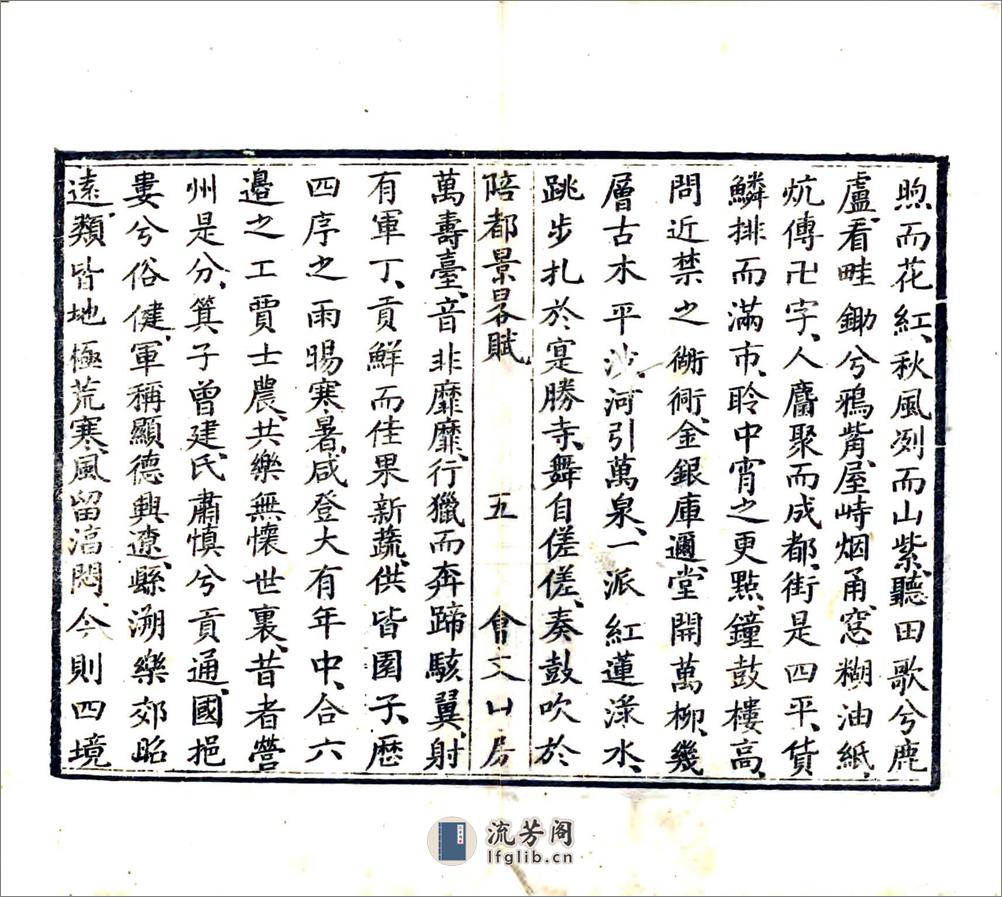 煦而花紅、秋風冽而山紫、聽田歌兮鹿
盧、看畦鋤兮鴉觜、屋峙烟甬、窓糊油紙、
炕傳卍字、人麕聚而成都、街是四平、貨
鱗排而滿市、聆中宵之更點、鐘鼓樓高、
問近禁之衚衕、金銀庫邇、堂開萬柳、幾
層古木平沙、河引萬泉、一派紅蓮淥水、
跳步扎於寔勝寺、舞自傞傞、奏鼓吹於
陪都景畧賦
五
會文山房
萬壽臺、音非靡靡、行獵而奔蹄駭翼、射
有軍丁、貢鮮而佳果新蔬、供皆園子、歷
四序之雨暘寒暑、咸登大有年中、合六
邉之工賈士農、共樂無懷世裏、昔者營
州是分、箕子曾建、氏肅慎兮貢通、國挹
婁兮俗健、軍稱顯德興遼、縣溯樂郊昭
遠、類皆地極荒寒、風留滀悶、今則四境
流芳阁
lfglib.cn